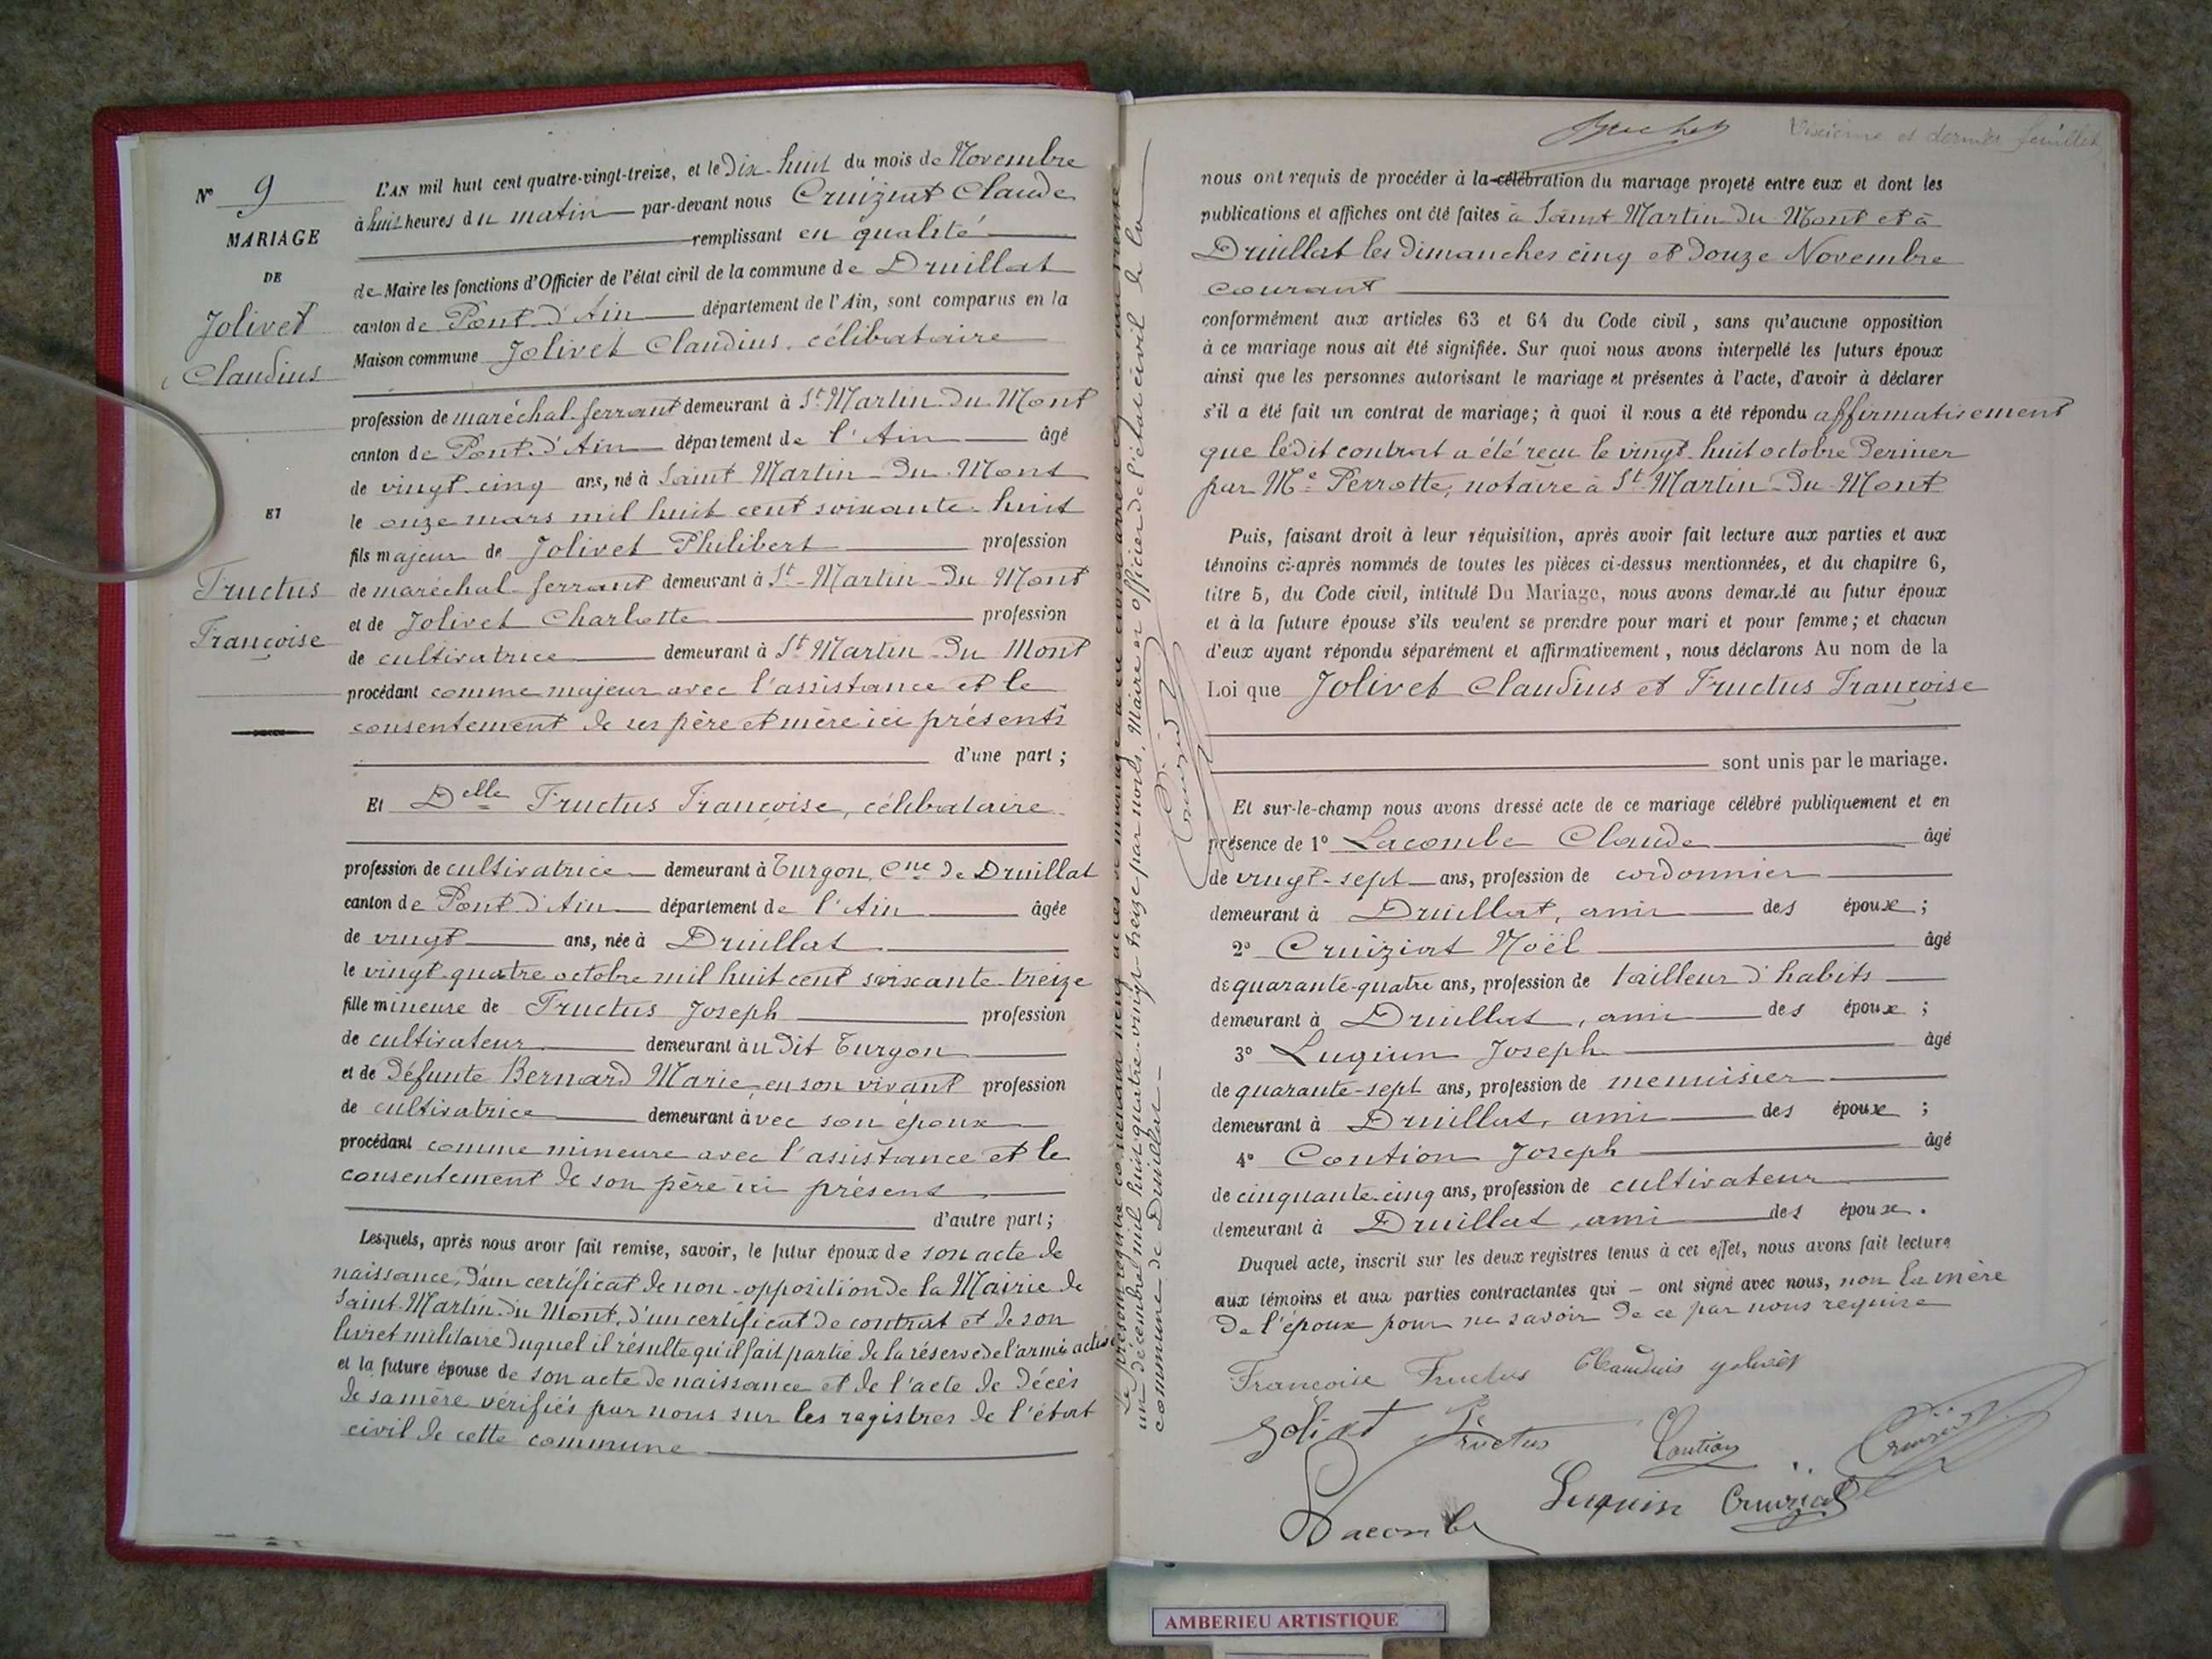 N° 9
MARIAGE
DE
Jolivet
Claudius
ET
Fructus
Françoise
L'AN mil huit cent quatre-vingt-treize, et le Dix-huit du mois de Novembre
à huit heures du matin par-devant nous Cruiziat Claude
remplissant en qualité
de Maire les fonctions d'Officier de l'état civil de la commune de Druillat
canton de Pont-d'Ain département de l'Ain, sont comparus en la
Maison commune Jolivet Claudius, célibataire
profession de maréchal-ferrant demeurant à St Martin-du-Mont
canton de Pont-d'Ain département de l'Ain âgé
de vingt-cinq ans, né à Saint Martin-du-Mont
le onze mars mil huit cent soixante-huit
fils majeur de Jolivet Philibert profession
de maréchal-ferrant demeurant à St-Martin-du Mont
et de Jolivet Charlotte profession
de cultivatrice demeurant à St Martin-du Mont
procédant comme majeur avec l'assistance et le
consentement de ses père et mère ici présents
d'une part ;
Et Delle Fructus Françoise, célibataire
profession de cultivatrice demeurant à Turgon, Cne de Druillat
canton de Pont-d'Ain département de l'Ain âgée
de vingt ans, née à Druillat
le vingt-quatre octobre mil huit cent soixante-treize
fille mineure de Fructus Joseph profession
de cultivateur demeurant au dit Turgon
et de Défunte Bernard Marie, en son vivant profession
de cultivatrice demeurant avec son époux
procédant comme mineure avec l'assistance et le
consentement de son père ici présent
d'autre part ;
Lesquels, après nous avoir fait remise, savoir, le futur époux de son acte de
naissance, d'un certificat de non-opposition de la Mairie de
Saint-Martin-du Mont, d'un certificat de contrat et de son
livret militaire duquel il résulte qu'il fait partie de la réserve de l'armée active
et la future épouse de son acte de naissance et de l'acte de décès
de sa mère vérifiés par nous sur les registres de l'état
civil de cette commune
Le présent registre contenant neuf actes de mariage a été clos
un décembre mil huit quatre-vingt-treize par nous, Maire et officier de l'état civil de la
commune de Druillat
Cruiziat
et dernier feuillet
nous ont requis de procéder à la célébration du mariage projeté entre eux et dont les
publications et affiches ont été faites à Saint Martin du Mont et à
Druillat les dimanches cinq et douze Novembre
courant
conformément aux articles 63 et 64 du Code civil, sans qu'aucune opposition
à ce mariage nous ait été signifiée. Sur quoi nous avons interpellé les futurs époux
ainsi que les personnes autorisant le mariage et présentes à l'acte, d'avoir à déclarer
s'il a été fait un contrat de mariage ; à quoi il nous a été répondu affirmativement
que ledit contrat a été reçu le vingt-huit octobre dernier
par Me Perrotte, notaire à St Martin-du-Mont
Puis, faisant droit à leur réquisition, après avoir fait lecture aux parties et aux
témoins ci-après nommés de toutes les pièces ci-dessus mentionnées, et du chapitre 6,
titre 5, du Code civil, intitulé Du Mariage, nous avons demandé au futur époux
et à la future épouse s'ils veulent se prendre pour mari et pour femme ; et chacun
d'eux ayant répondu séparément et affirmativement, nous déclarons Au nom de la
Loi que Jolivet Claudius et Fructus Françoise
sont unis par le mariage.
Et sur-le-champ nous avons dressé acte de ce mariage célébré publiquement et en
présence de 1° Lacombe Claude âgé
de vingt-sept ans, profession de cordonnier
demeurant à Druillat, ami des époux ;
2° Cruiziat Noël âgé
de quarante-quatre ans, profession de tailleur d'habits
demeurant à Druillat, ami des époux ;
3° Luquin Joseph âgé
de quarante-sept ans, profession de menuisier
demeurant à Druillat, ami des époux ;
4° Caution Joseph âgé
de cinquante-cinq ans, profession de cultivateur
demeurant à Druillat, ami des époux.
Duquel acte, inscrit sur les deux registres tenus à cet effet, nous avons fait lecture
aux témoins et aux parties contractantes qui - ont signé avec nous, non la mère
de l'époux pour ne savoir de ce par nous requise
Francoise Fructus Claudius jolivet
Jolivet Fructus Caution Cruiziat
Lacombe Luquin Cruiziat
AMBERIEU ARTISTIQUE